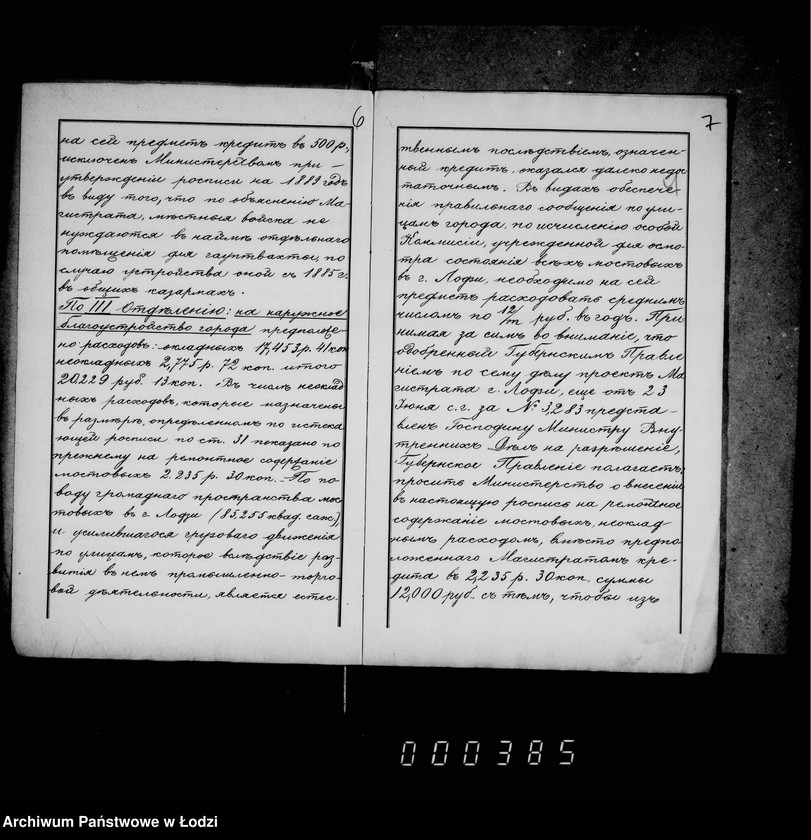 6
на сей предметъ кредитъ въ 500 р,
исключенъ Министерствомъ при-
утвержденіи росписи на 1889 годъ
въ виду того, что по объясненію Ма-
гистрата, мѣстныя войска не
нуждаются въ наймѣ отдѣльнаго
помѣщенія для гауптвахты, по
случаю устройства оной съ 1885 г.
въ общихъ казармахъ.
По III Отдѣленію: на наружное
благоустройство города предположе-
но расходовъ: окладныхъ 17,453 р. 41 коп
неокладныхъ 2,775 р. 72 коп. итого
20229 руб. 13 коп. Въ числѣ неоклад
ныхъ расходовъ, которые назначены
въ размѣрѣ, опредѣленномъ по истека
ющей росписи по ст. 31 показано по
прежнему на ремонтное содержаніе
мостовыхъ 2.235 р. 30 коп. - По по
воду громаднаго пространства мос
товыхъ въ г. Лодзи (85,255 квад. саж.),
и усилившагося грузоваго движенія
по улицамъ, которое вслѣдствіе раз-
витія въ немъ промышленно-торго-
вой дѣятельности, является естес.
7
твеннымъ послѣдствіемъ, означен-
ный кредитъ, оказался далеко недос
таточнымъ. Въ видахъ обеспече-
нія правильнаго сообщенія по ули-
цамъ города, по исчисленію особой
Коммисіи, учрежденной для осмо-
тра состоянія всѣхъ мостовыхъ
въ г. Лодзи, необходимо на сей
предметъ расходовать среднимъ
числомъ по 12/m руб. въ годъ. При
нимая за симъ во вниманіе, что
одобренный Губернскимъ Правле
ніемъ по сему дѣлу проектъ Ма
гистрата г. Лодзи, еще отъ 23
Іюня с.г. за № 3283 представ-
ленъ Господину Министру Вну-
треннихъ Дѣлъ на разрѣшеніе,
Губернское Правленіе полагаетъ:
просить Министерство о внесеніи
въ настоящую роспись на ремонтное
содержаніе мостовыхъ, неоклад-
нымъ расходомъ, вмѣсто предпо-
ложеннаго Магистратомъ кре-
дита въ 2,235 р. 30 коп, суммы
12,000 руб. съ тѣмъ, чтобы изъ
000385
Archiwum Państwowe w Łodzi